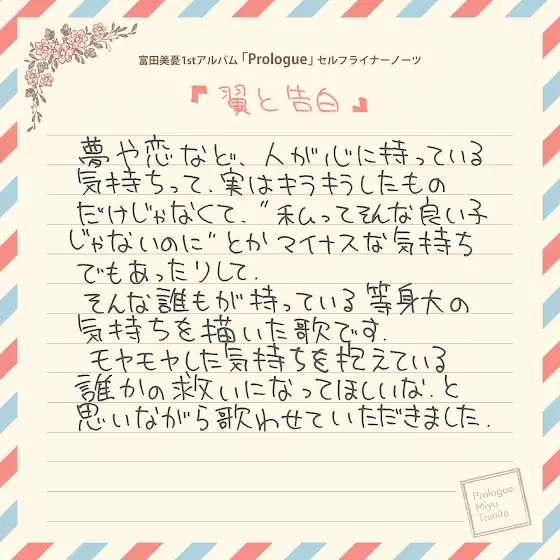 富田美憂1stアルバム「Prologue」セルフライナーノーツ
『翼と告白』
夢や恋など、人が心に持っている
気持ちって、実はキラキラしたもの
だけじゃなくて、"私ってそんな良い子
じゃないのに"とかマイナスな気持ち
でもあったりして.
そんな誰もが持っている等身大の
気持ちを描いた歌です.
モヤモヤした気持ちを抱えている
誰かの救いになってほしいな.と
思いながら歌わせていただきました.
Prologue
Miyu
Tomita